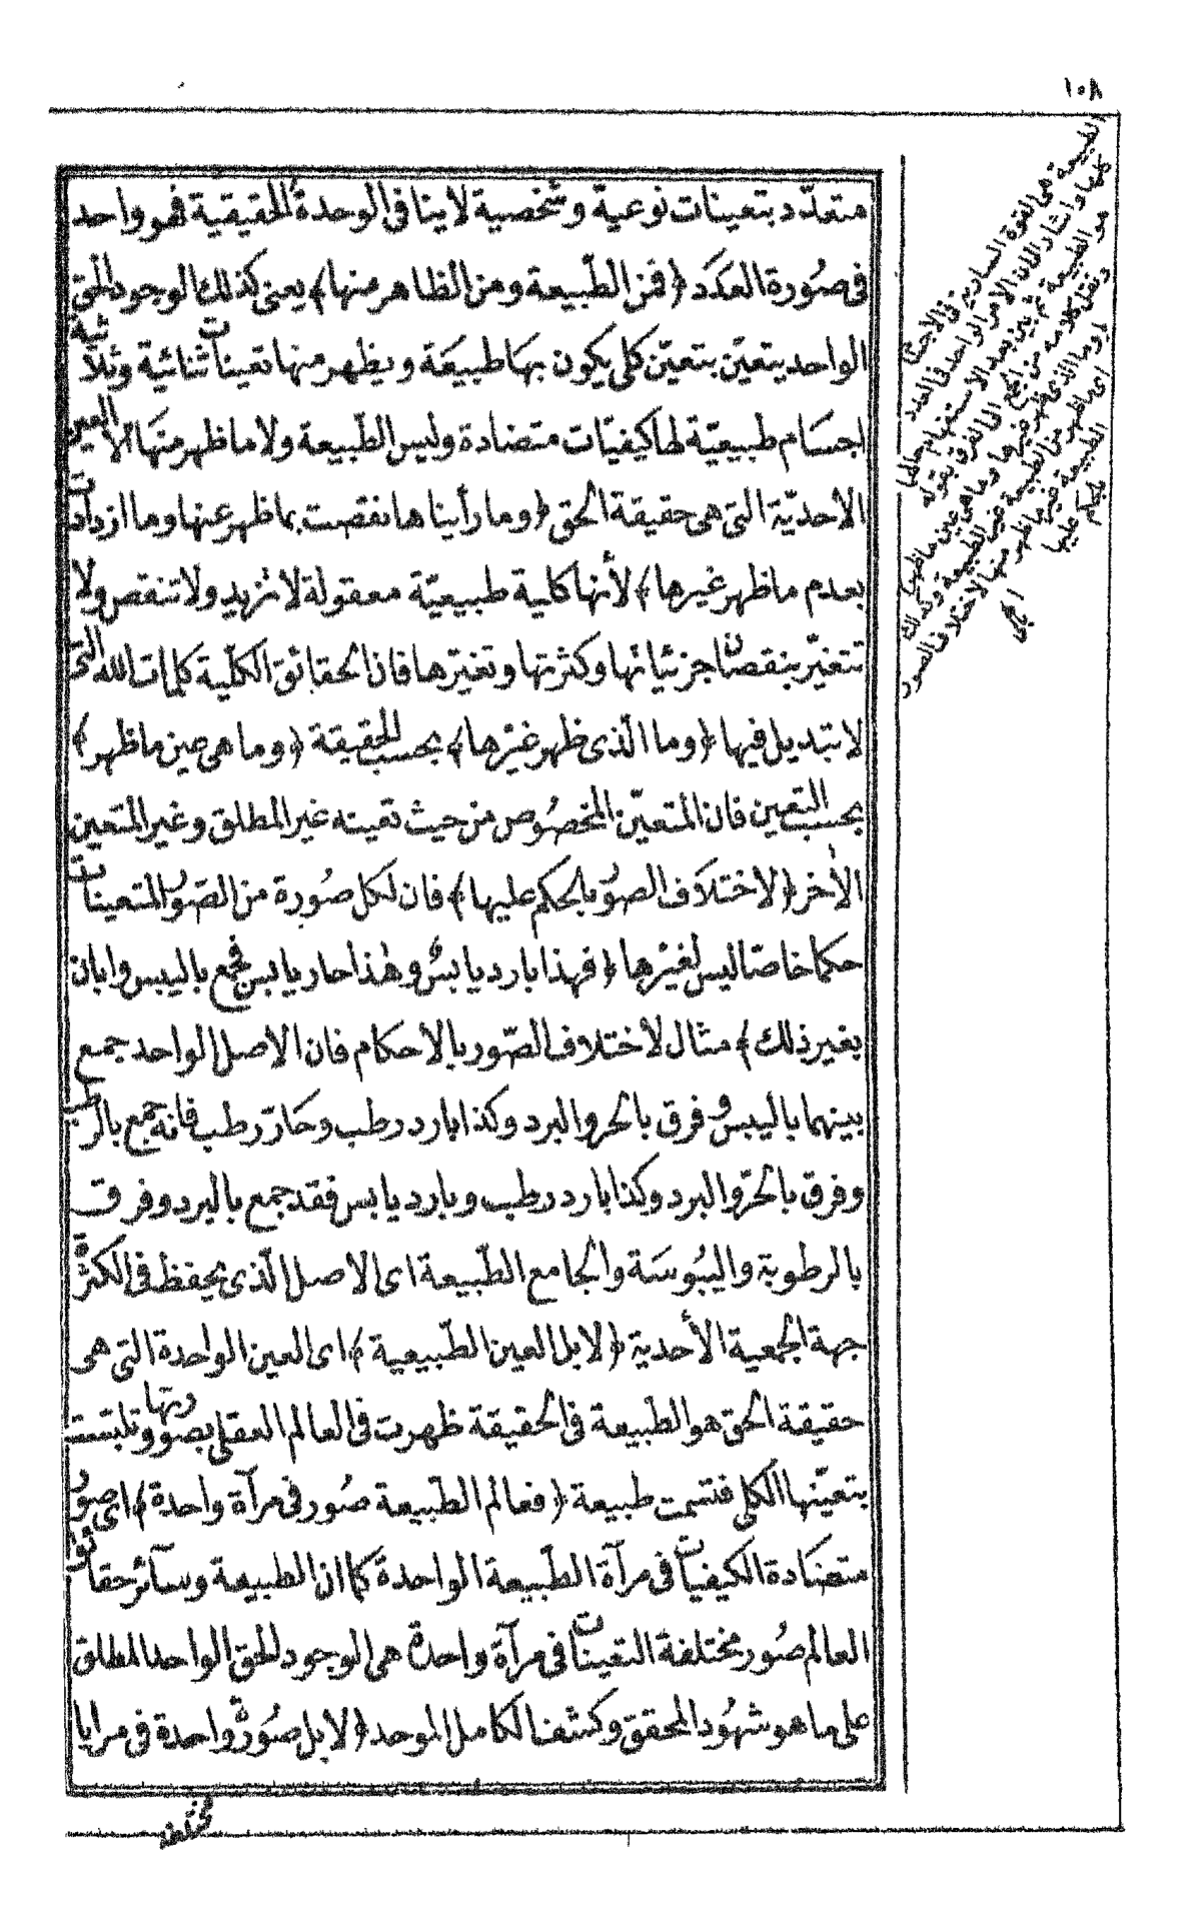 ١٠٨
متعدّد بتعينات نوعية وشخصية لا ينافى الوحدة الحقيقية فهو واحد
فى صورة العدد ﴿فمن الطّبيعة ومن الظاهر منها﴾ يعنى كذلك الوجود الحق
الواحد يتعيّن بتعيّن كلى يكون بها طبيعة ويظهر منها تعينات ثنائية وثلاثية
اجسام طبيعيّة لها كيفيّات متضادة وليس الطّبيعة ولا ما ظهر منها الا العين
الاحديّة التى هى حقيقة الحق ﴿وما رأيناها نقصت بما ظهر عنها وما ازدادت
بعدم ما ظهر غيرها﴾ لأنها كلية طبيعيّة معقولة لا تزيد ولا تنقص ولا
تتغيّر بنقصان جزئياتها وكثرتها وتغيّرها فان الحقائق الكلّية كلمات الله التى
لا تبديل فيها ﴿وما الّذى ظهر غيرها﴾ بحسب الحقيقة ﴿وما هى عين ما ظهر﴾
بحسب التعين فان المتعيّن المخصوص من حيث تعينه غير المطلق وغير المتعين
الأخر ﴿لاختلاف الصور بالحكم عليها﴾ فان لكل صورة من الصور المتعينات
حكما خاصّا ليس لغيرها ﴿فهذا بارد يابس وهذا حار يابس فجمع باليبس وابان
بغير ذلك﴾ مثال لاختلاف الصّور بالاحكام فان الاصل الواحد جمع
بينهما باليبس وفرق بالحر والبرد وكذا بارد رطب وحارّ رطب فانه جمع بالرطب
وفرق بالحرّ والبرد وكذا بارد رطب وبارد يابس فقد جمع بالبرد وفرق
بالرطوبة واليبوسة والجامع الطّبيعة اى الاصل الّذى يحفظ فى الكثرة
جهة الجمعية الأحدية ﴿لا بل العين الطّبيعية﴾ اى العين الواحدة التى هى
حقيقة الحق هو الطّبيعة فى الحقيقة ظهرت فى العالم العقلى بصورتها وتلبّست
بتعيّنها الكلى فتسمت طبيعة ﴿فعالم الطّبيعة صور فى مرآة واحدة﴾ اى صور
متضادة الكيفيات فى مرآة الطّبيعة الواحدة كما ان الطبيعة وسائر حقائق
العالم صور مختلفة التعينات فى مرآة واحدة هى الوجود الحق الواحد المطلق
على ما هو شهود المحقق وكشف الكامل الموحد ﴿لا بل صورة واحدة فى مرايا
مختلفة
الطبيعة هى القوة السارية فى الاجسام
كلها واشار الان الامر الواحد فى العدد
هو الطبيعة ثم بين بعد الاستفهام حالها
ونقل كلامه من الجمع الى الفرق بقوله
وما الذى ظهر غيرها وما هى عين ما ظهر
اى ما ظهر من الطبيعة غير الطبيعة وكذلك
الطبيعة غير ما ظهر منها لاختلاف الصور
بالحكم عليها